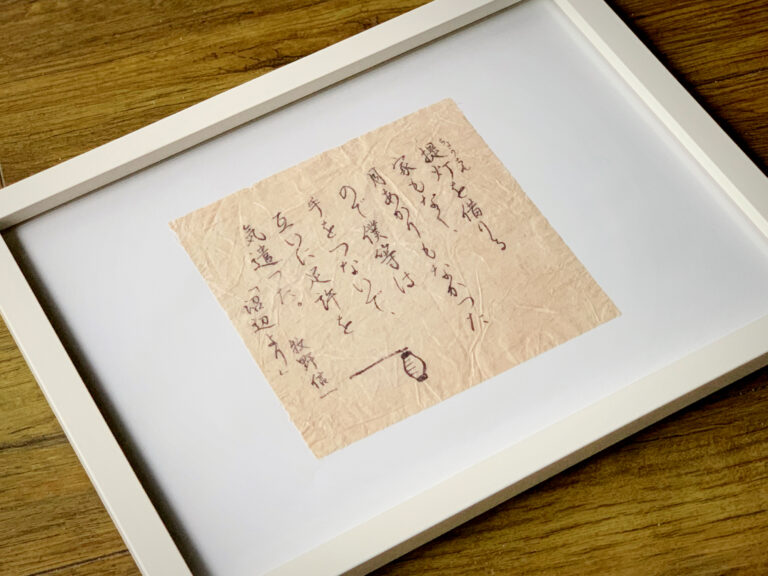 提灯を借りる
家もなく、
月あかりもなかつた
ので僕等は
手をつないで、
互いに足許を
気遣つた。
牧野信一
「沼辺より」